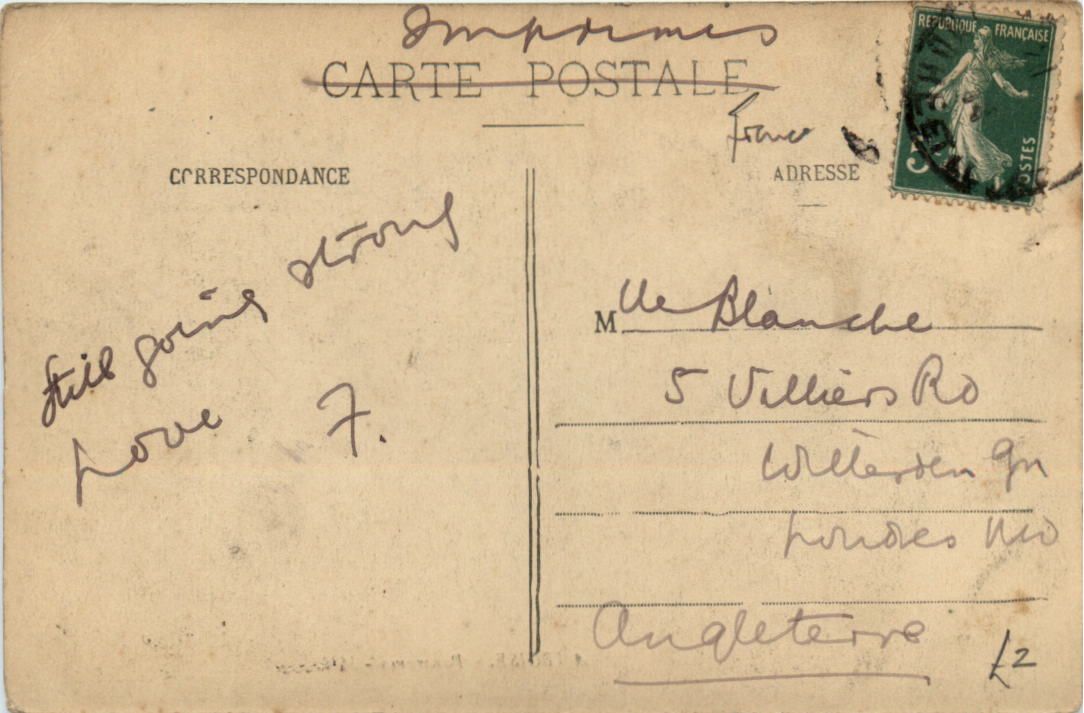 Imprimés
CARTE POSTALE
France
CORRESPONDANCE
ADRESSE
REPUBLIQUE FRANÇAISE
5
POSTES
Still going strong
Love F.
Mlle Blanche
5 Villiers Rd
Willesden Gn
Londres NW
Angleterre
£2